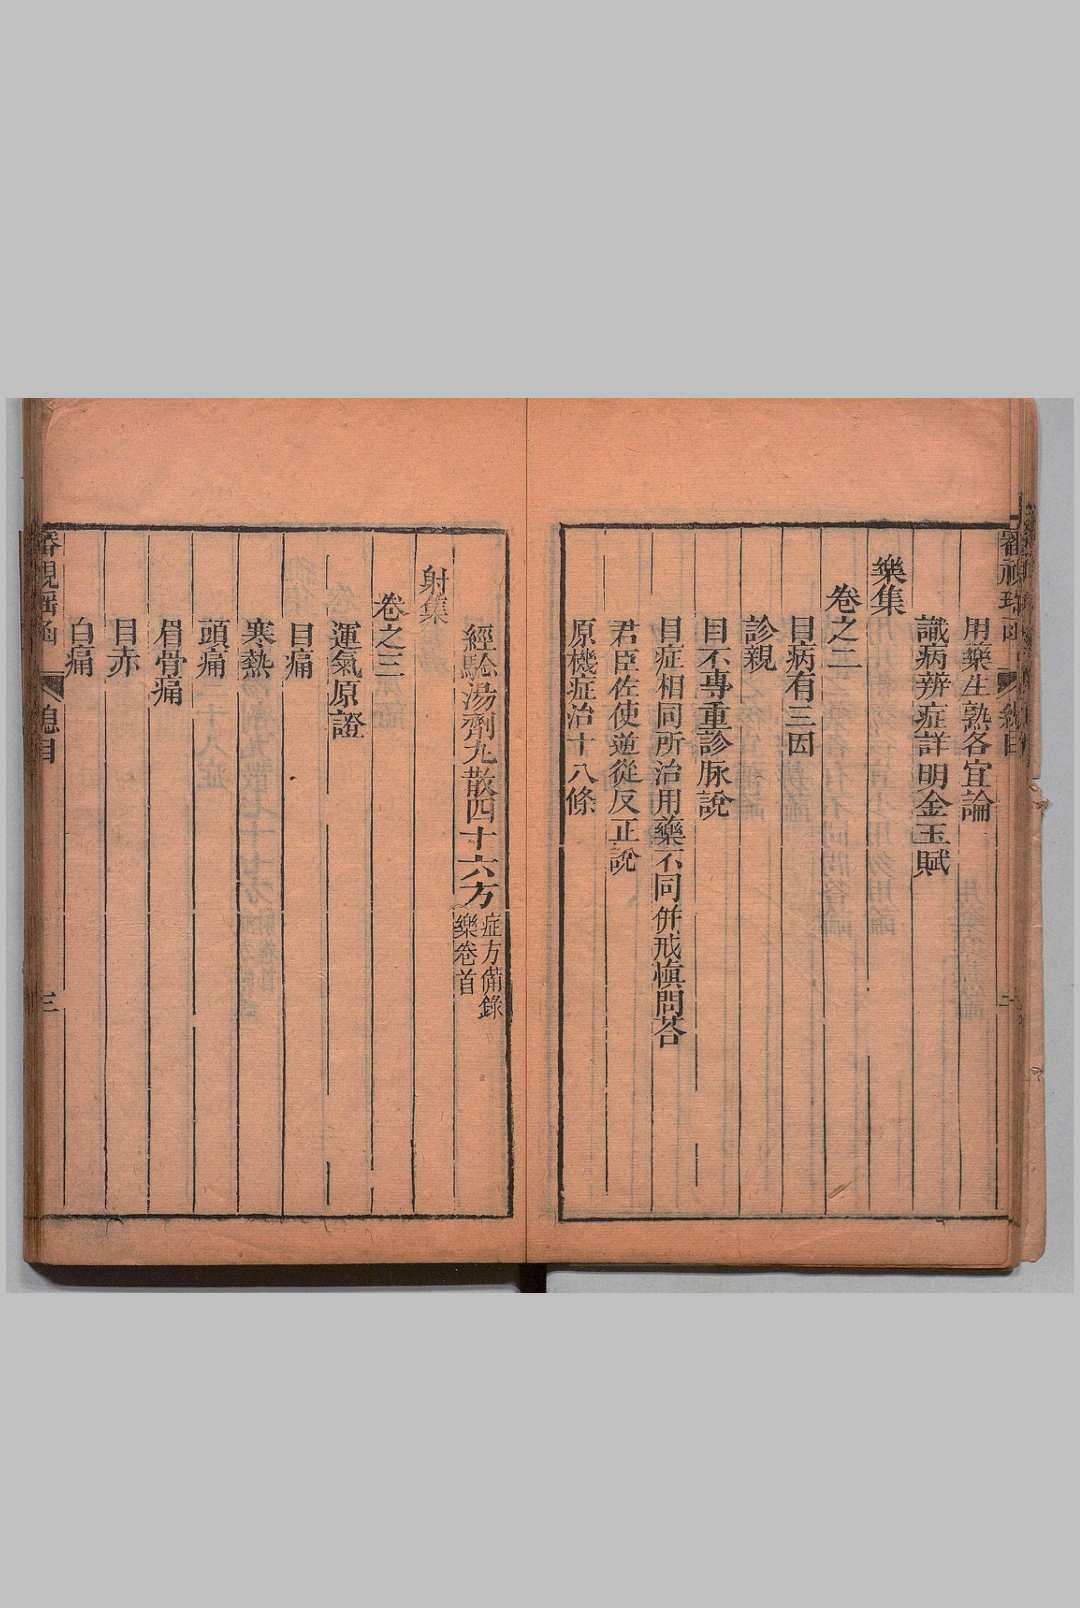 用藥生熟各宜論
識病辨症詳明金玉賦
樂集
卷之二
目病有三因
診視
目不專重診脉說
目症相同所治用藥不同併戒慎問荅
君臣佐使逆從反正說
原機症治十八條
經驗湯劑丸散四十六方 症方備錄 樂卷首
射集
卷之三
運氣原證
目痛
寒熱
頭痛
眉骨痛
目赤
白痛
審視瑤函 總目 三